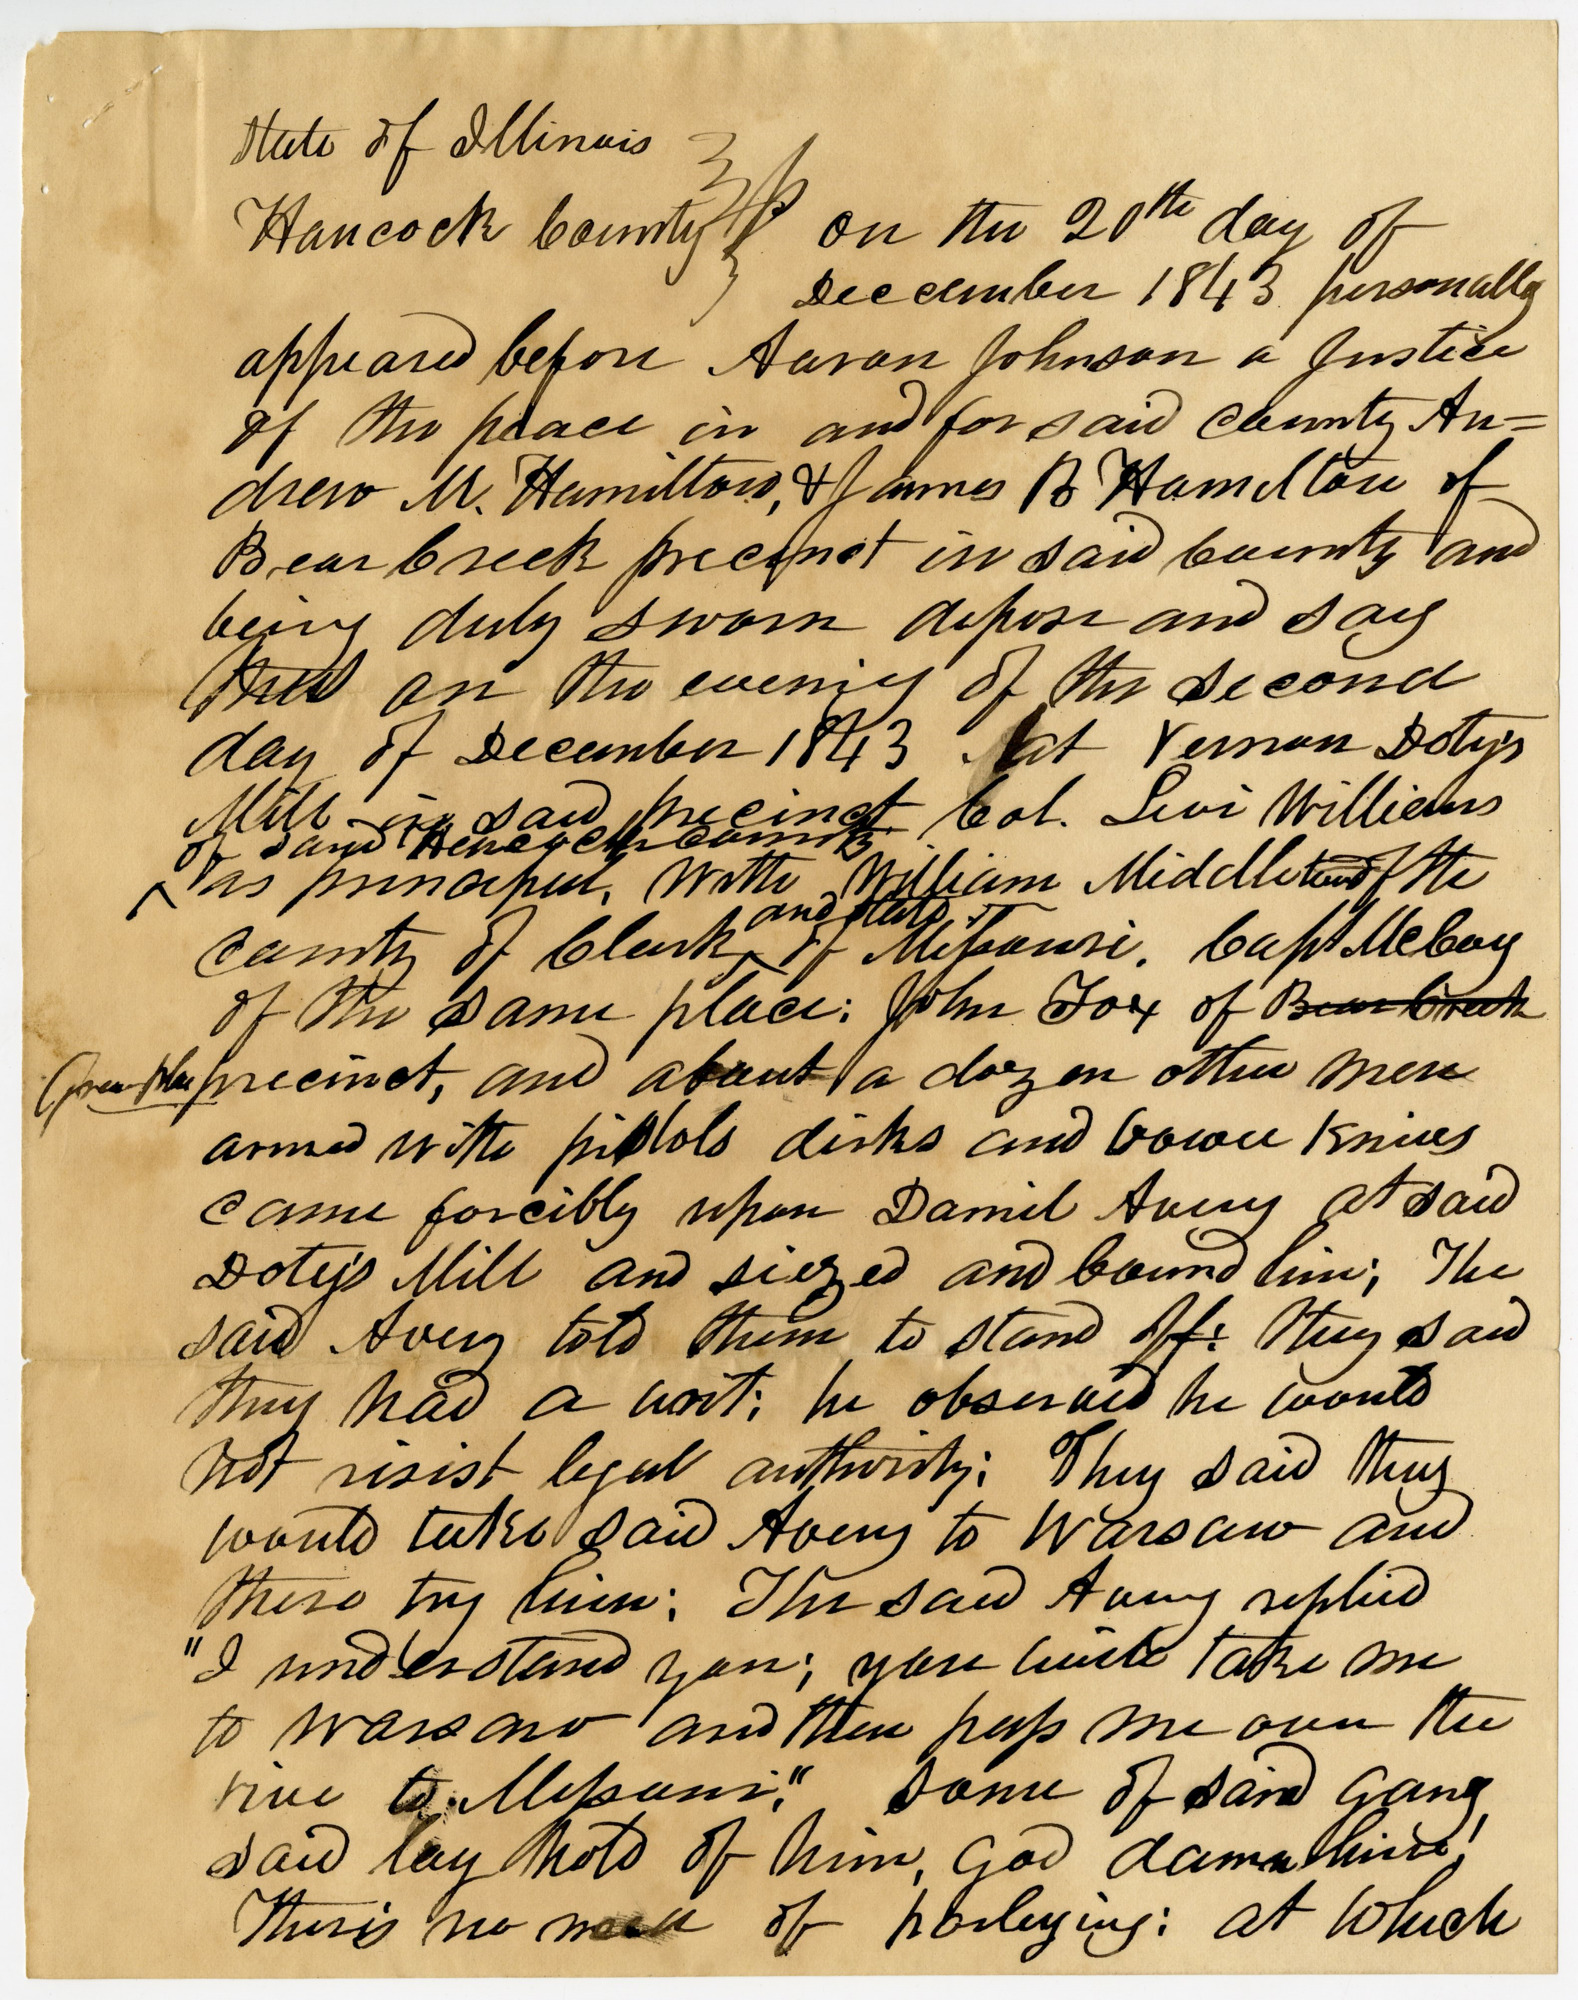 State of Illinois
Hancock County ss On the 20th day of
December 1843 personally
appeared before Aaron Johnson a Justice
of the peace in and for said county An=
drew M. Hamilton, & James B Hamilton of
Bear Creek precinct in said County and
being duly sworn depose and say
that on the evening of the second
day of December 1843 at Vernon Doty's
Mill in said precinct Col. Levi Williams
of said Hancock county
^ as principal, With William Middleton of the
and state
county of Clark ^ of Missouri. Capt McCoy
of the same place; John Fox of Bear Creek
Green Plai precinct, and about a dozen other men
armed with pistols dirks and bowie Knives
came forcibly upon Daniel Avery at said
Doty's Mill and siezed and bound him; The
said Avery told them to stand off: they said
they had a writ; he observed he would
not risist legal authority; They said they
would take said Avery to Warsaw and
there try him; The said Avery replied
"I understand you; you will take me
to Warsaw and then pass me over the
rive to Missouri;" some of said gang
said lay hold of him, God damn him!
There's no of parleying: at which